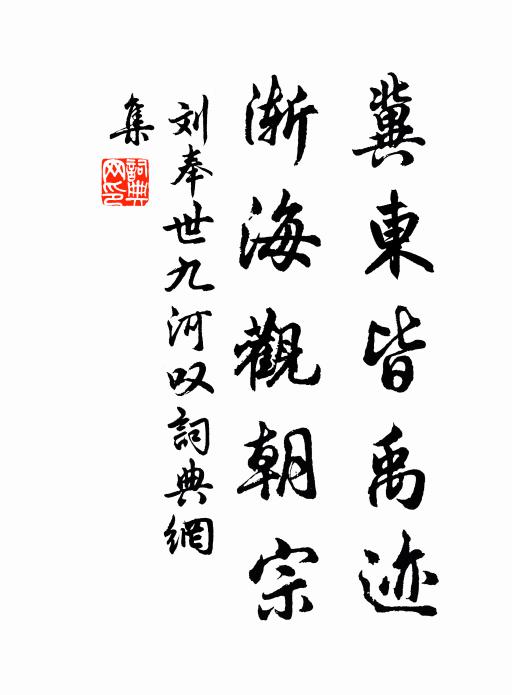 冀東皆禹迹
渐海觀朝宗
刘奉世九河叹詞典網
集
詞典网印